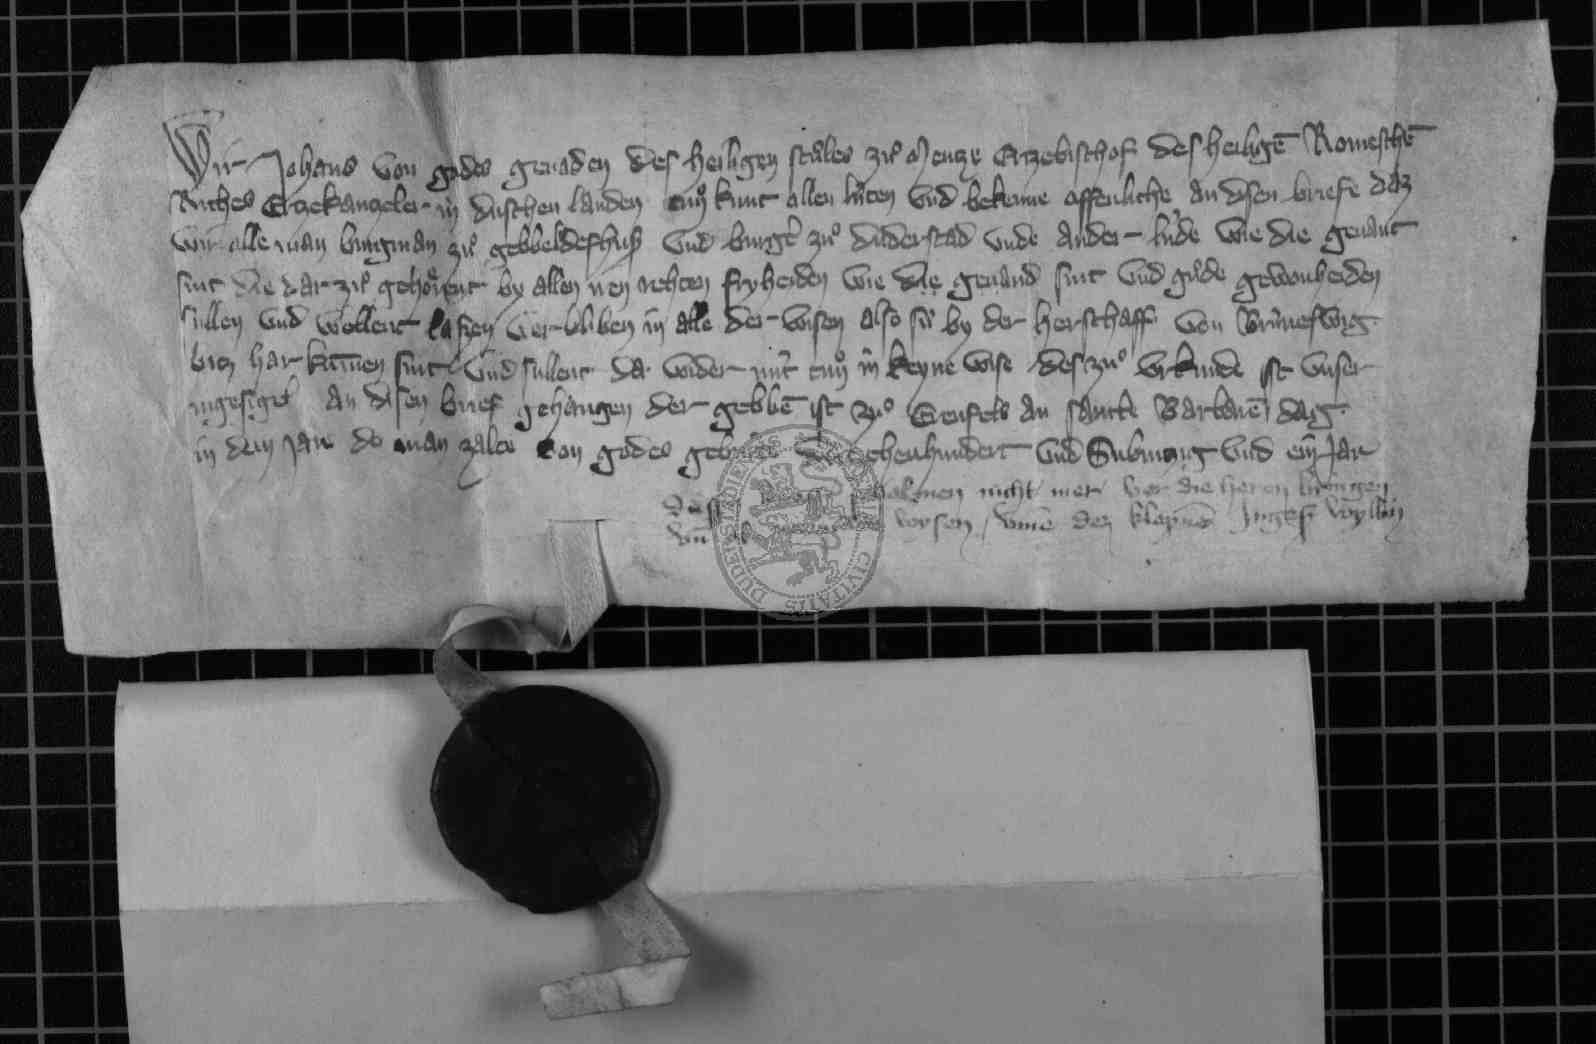 Wir Johans von godes genaden des heiligen stůles zuͦ Mentze Ertzebischof des heiligē Romeschē
Riches Ertzekanzeler in dutschen landen tuͦn kunt allen luten und bekenne offenliche an disen briefe daz
wir alle man burgman zuͦ gebbeldeshusz und burgē zuͦ duderstad unde ander lude wie die genant
sint die dar zuͦ gehoͤrent by allen iren rehten fryheiden wie die genand sint und guͦde gewonheiden
sullen und wollent lassen verbliben in alle der wisen also sie by der herschaff von Bruneswig
bitz har kumen sint und sullent da wider nit tuͦn in keyne wise des zuͦ urkunde ist unser
ingesigel an disen brief gehangen der gebbē ist zuͦ Erenfels an sancte Barbarē dag
in dem jare do man zalte von godes geburte druzehenhundert und Subintzig und ein Jar
nicht mer vor die heren bringen
wysen umme dez kleynē Ingesz wyllin
DUDERSTADIENSIS CIVITATIS